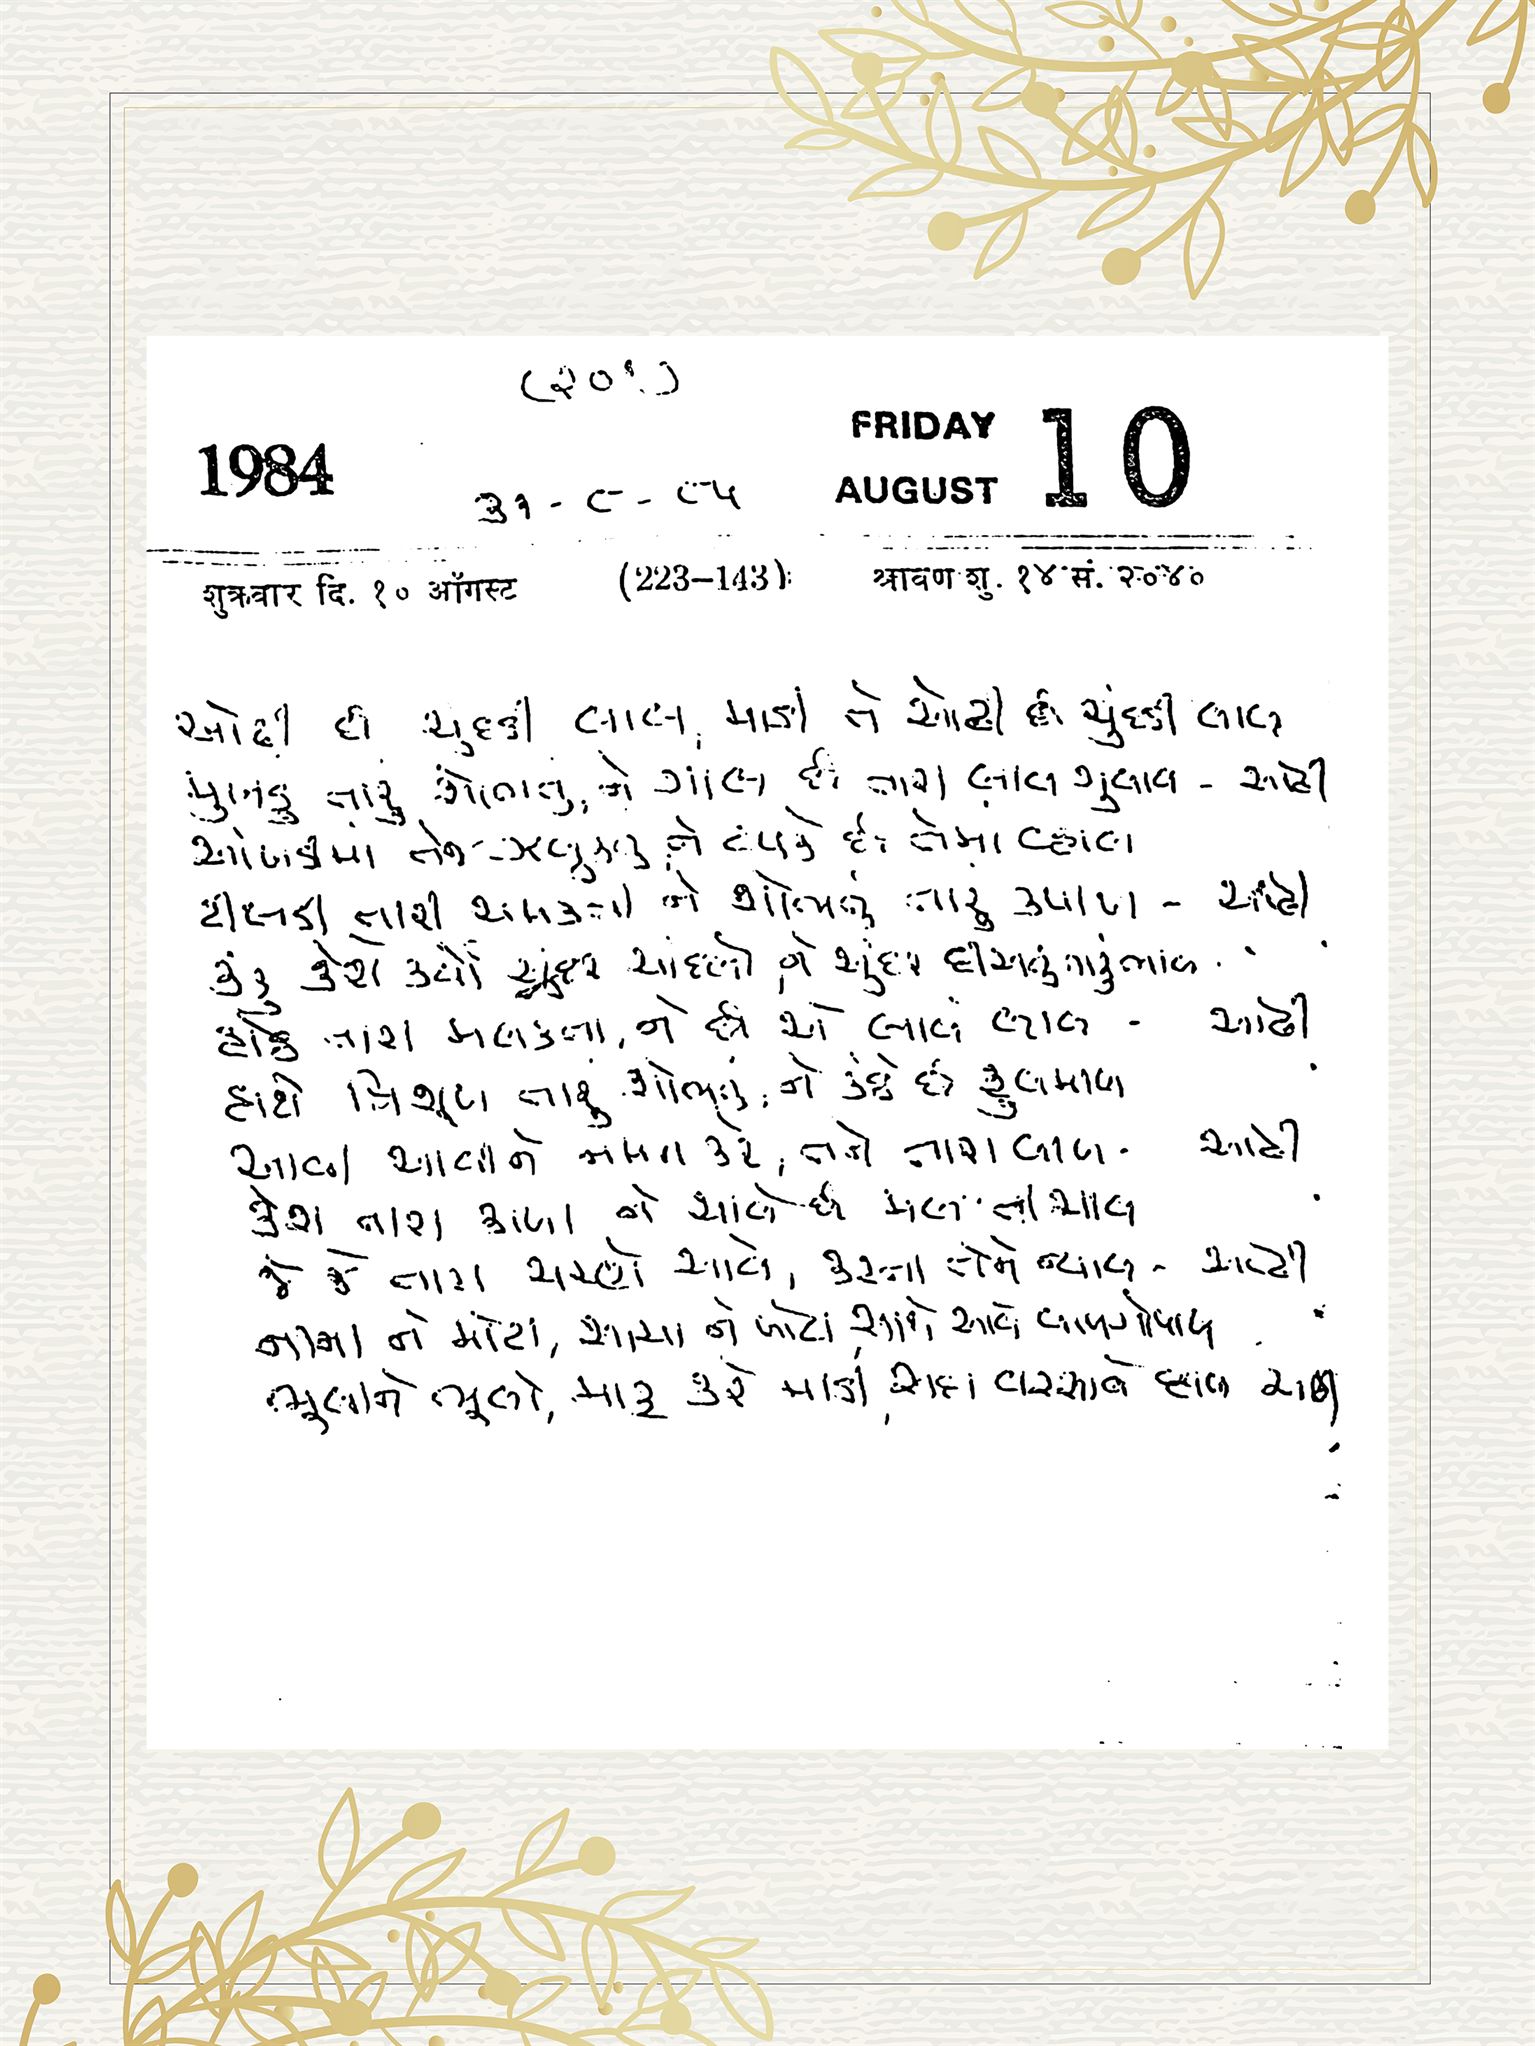 (૨૦૧)
1984
FRIDAY 10
AUGUST
૩૧-૮-૮૫
शुक्रवार दि. १० ऑगस्ट (223-143) श्रावण शु. १४ सं. २०४०
ઓઢી છે ચુંદડી લાલ, માડી તે ઓઢી છે ચુંદડી લાલ
મુખડું તારું શોભતું, ને ગાલ છે તારા લાલ ગુલાલ - ઓઢી
આંખડીમાં તેજ ઝલુકતું ને ટપકે છે તેમાં વ્હાલ
ટીલડી તારી ચમકતી ને શોભતું તારું કપાળ - ઓઢી
કંકુ કેરો કર્યો સુંદર ચાંદલો, ને સુંદર દીસતું તારું ભાલ
હોઠ તારા મલકતા, ને છે એ લાલ લાલ - ઓઢી
હાથે ત્રિશૂળ તારું શોભતું, ને કંઠે છે ફુલમાળ
આવી આવીને નમન કરે, તને તારા બાળ - ઓઢી
કેશ તારા કાળા ને ચાલે છે મલપતી ચાલ
જે કે તારા ચરણે આવે, કરતા તેને ન્યાલ - ઓઢી
નાના ને મોટા, સાચા ને ખોટા, સાથે આવે બાળગોપાળ
ભૂલીને ભૂલો, માફ કરે માડી, સદા વરસાવે વ્હાલ ઓઢી